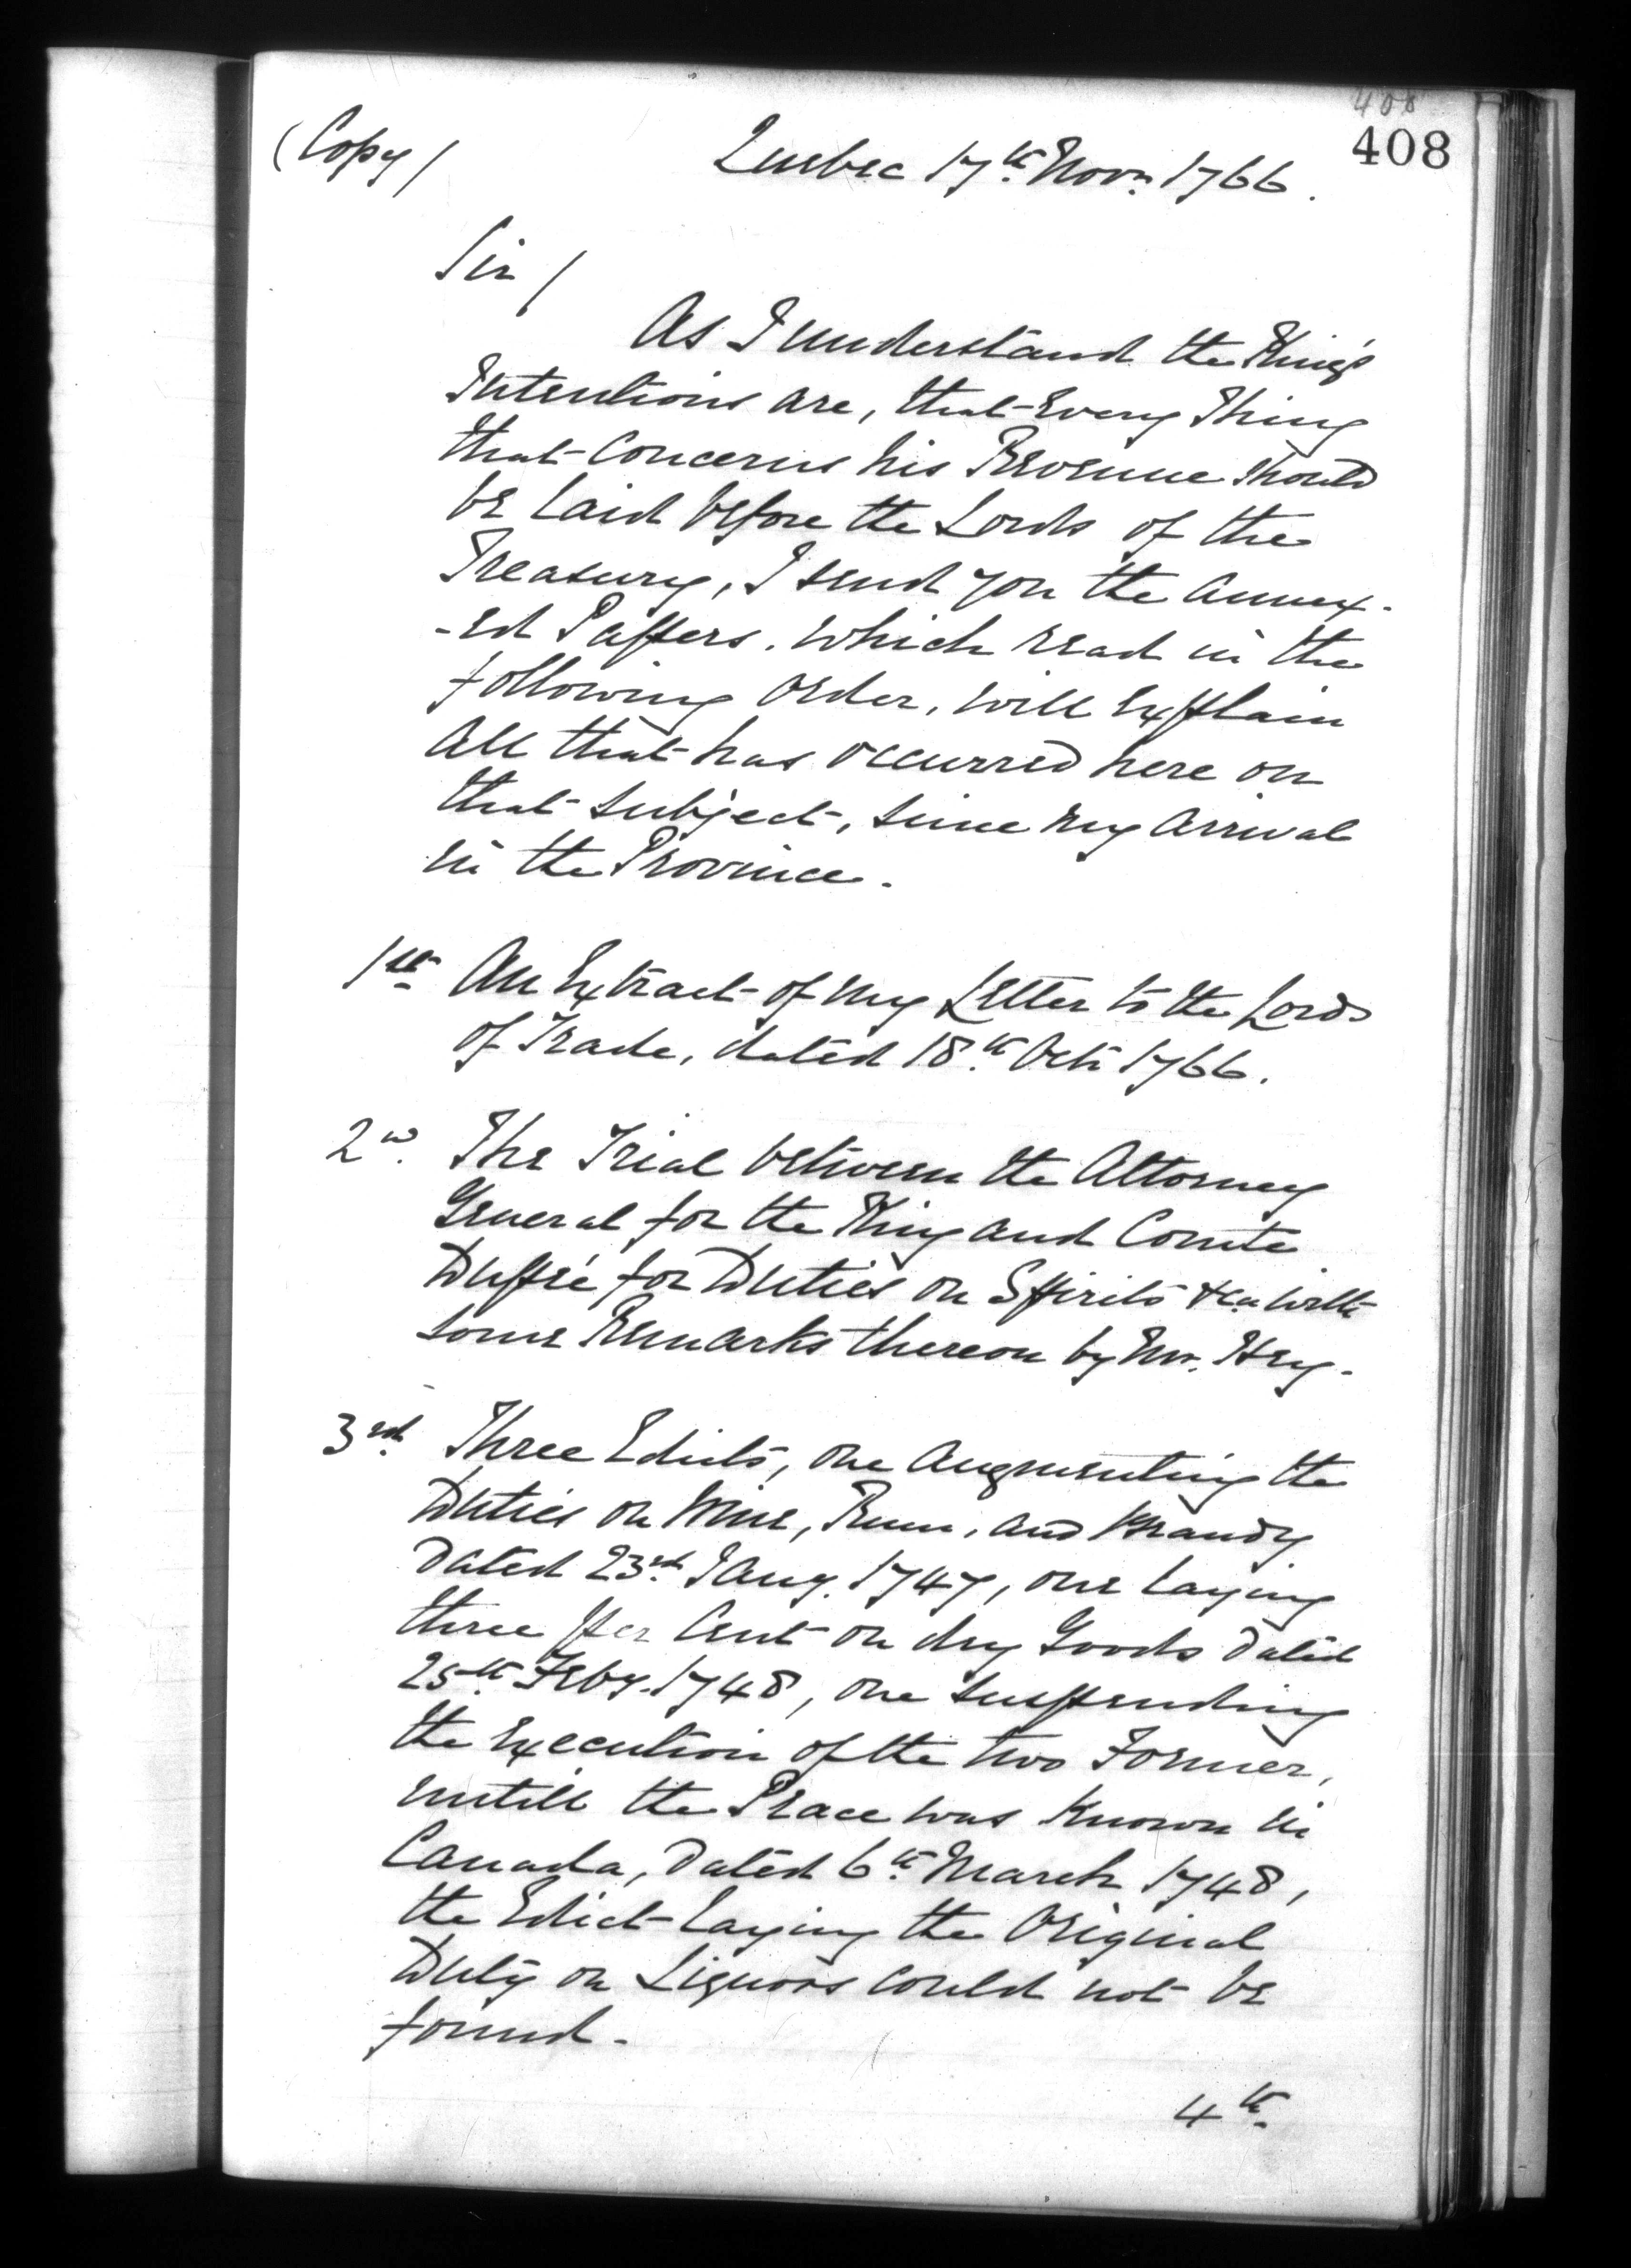 408
408
(Copy/
Quebec 17th Novr. 1766.
Sir/
As I understand the King's
Intentions are, that Every Thing
that Concerns his Revenue should
be laid before the Lords of the
Treasury, I send you the annex-
-ed Papers. which read in the
following order, will explain
all that has occurred here on
that subject, since my arrival
in the Province.
1st An Extract of my Letter to the Lords
of Trade, dated 18th Octr 1766.
2d. The Trial between the Attorney
General for the King and Comte
Dupré for Duties on Spirits &ca with
some Remarks thereon by Mr. Hey.
3rd. Three Edicts, one augmenting the
Duties on Wine, Rum, and Brandy
dated 23rd. Jany. 1747, one laying
three per Cent on dry Goods dated
25th Feby. 1748, one suspending
the Execution of the two Former,
untill the Peace was known in
Canada, dated 6th March 1748,
the Edict laying the Original
Duty on Liquors could not be
found.
4th